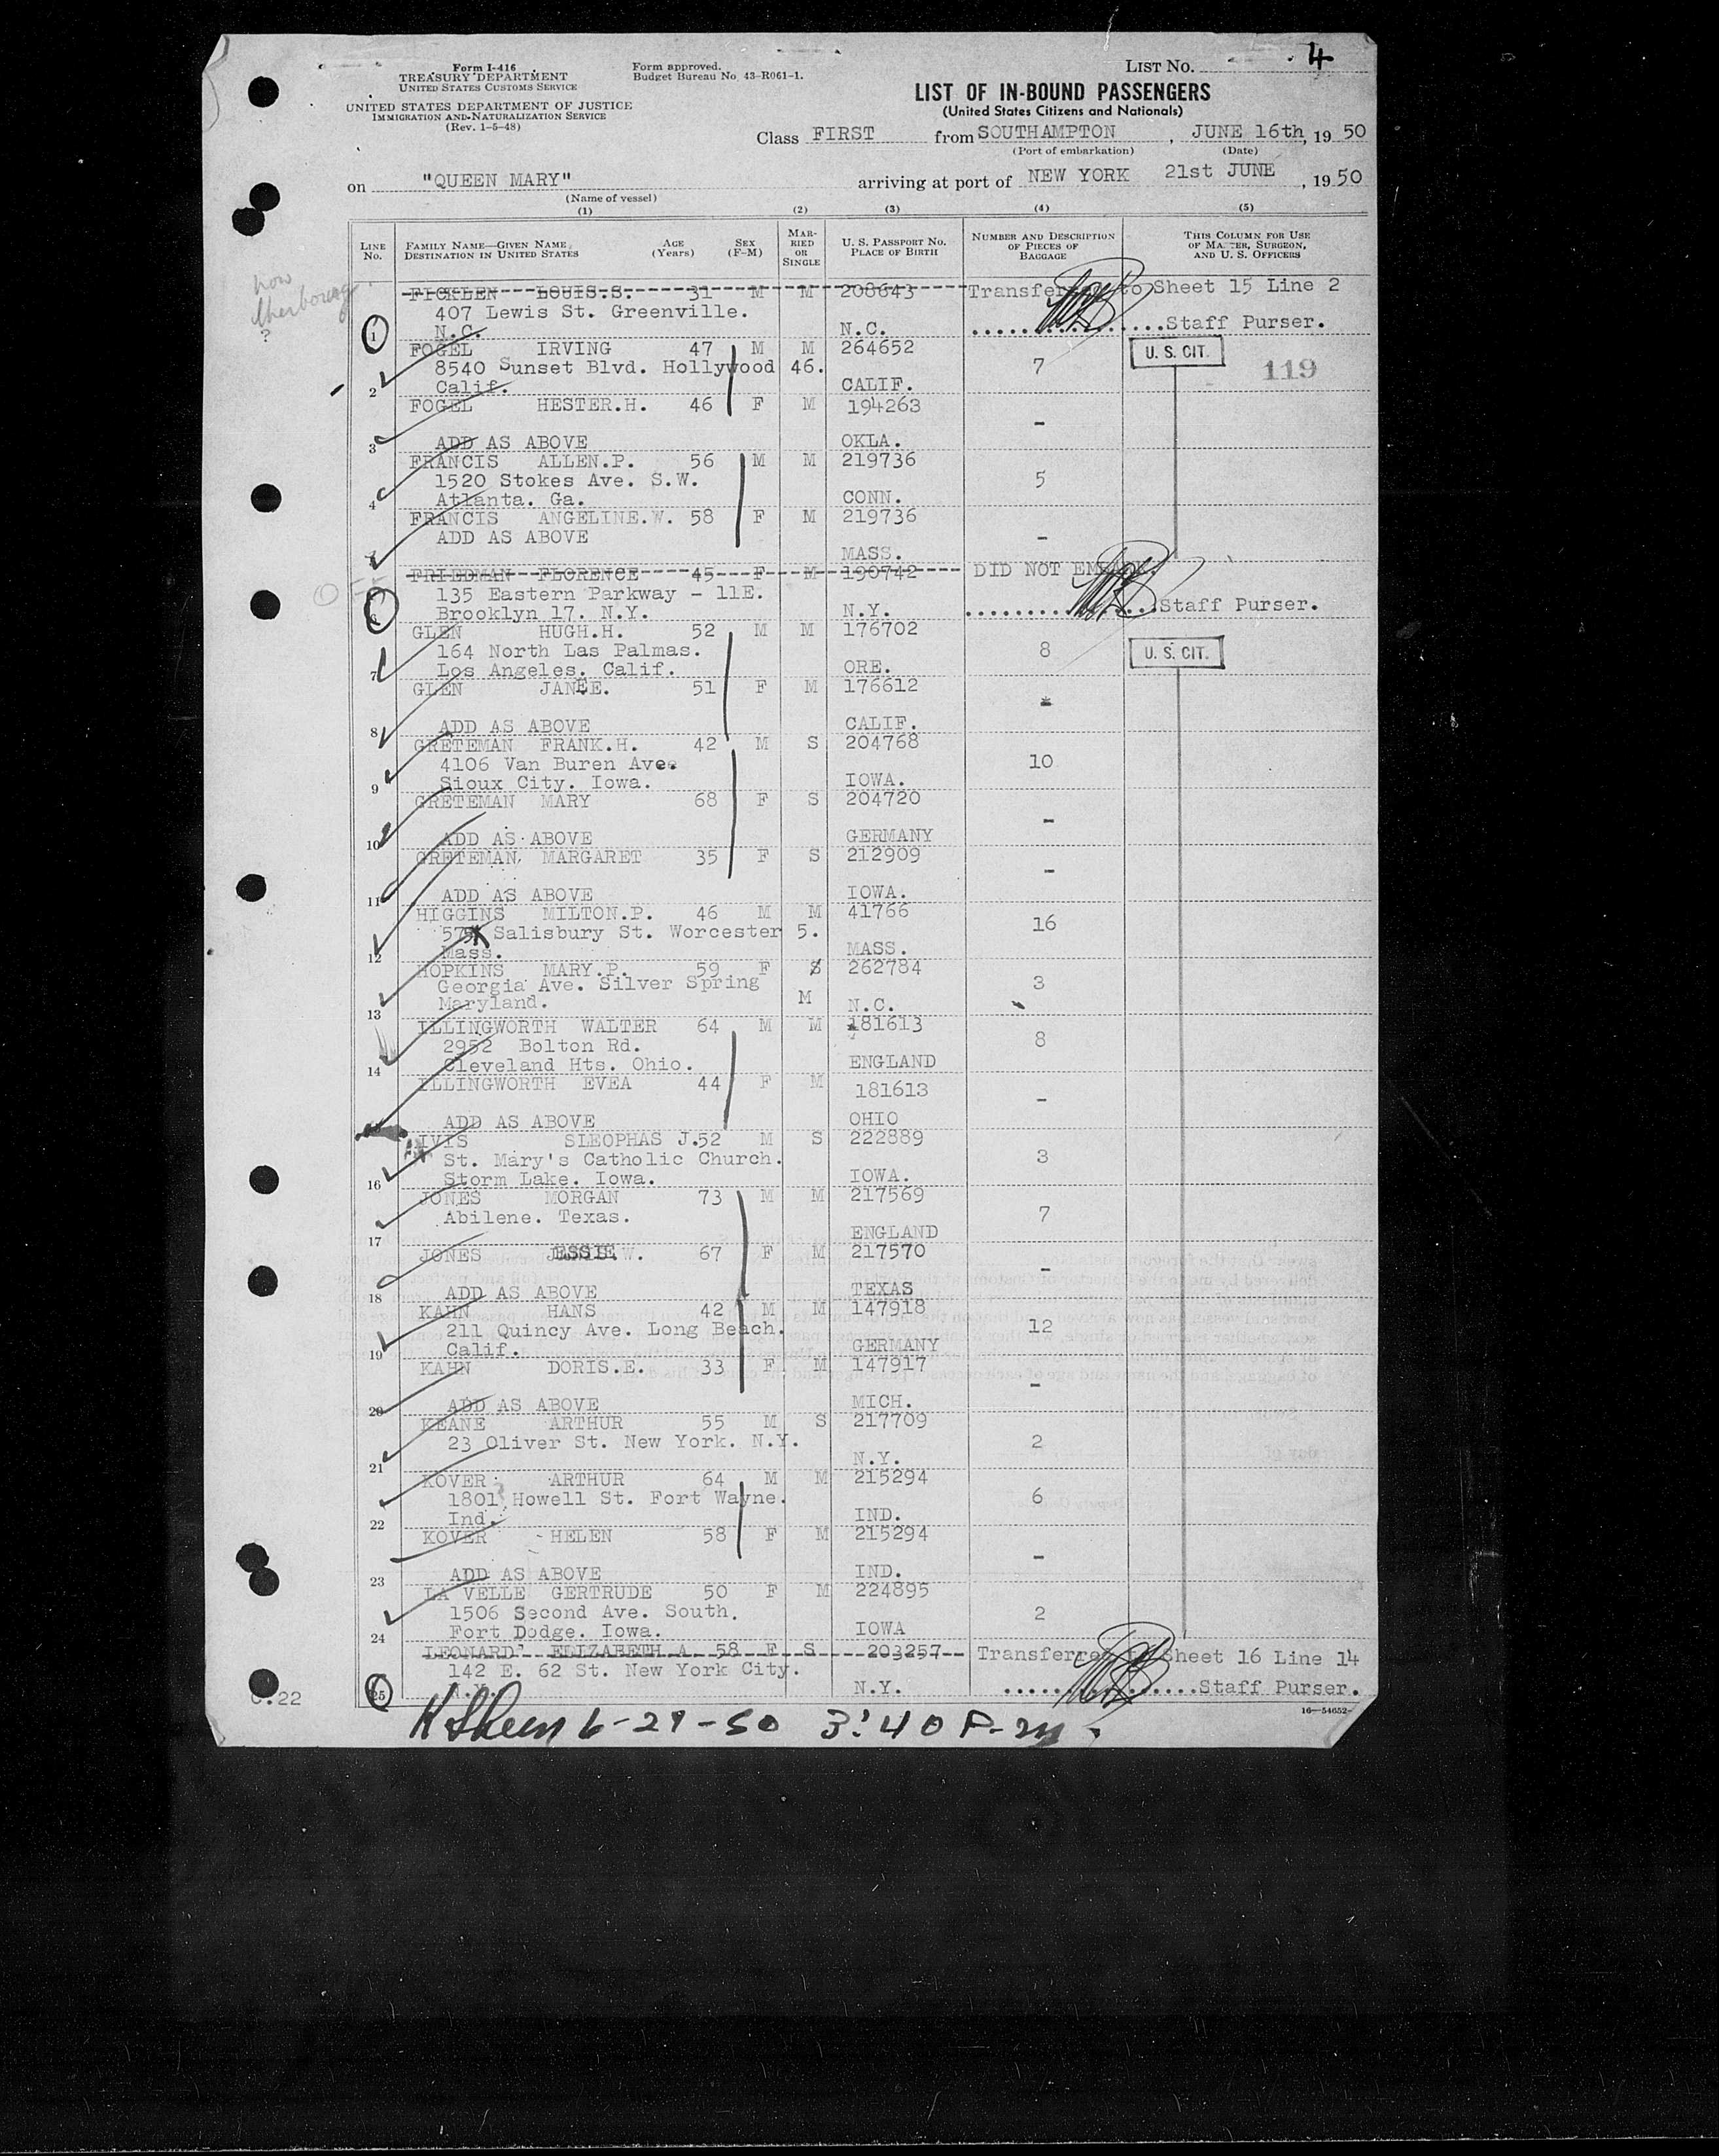 Form I-416
TREASURY DEPARTMENT
UNITED STATES CUSTOMS SERVICE
UNITED STATES DEPARTMENT OF JUSTICE
IMMIGRATION AND NATURALIZATION SERVICE
(Rev. 1-5-48)
Form approved.
Budget Bureau No. 43-R061-1.
LIST No. 4
LIST OF IN-BOUND PASSENGERS
(United States Citizens and Nationals)
Class FIRST from SOUTHAMPTON, JUNE 16th, 1950
(Port of embarkation) (Date)
on "QUEEN MARY" arriving at port of NEW YORK 21st JUNE, 1950
(Name of vessel)
(1) (2) (3) (4) (5)
LINE No. FAMILY NAME—GIVEN NAME DESTINATION IN UNITED STATES AGE (Years) SEX (F-M) MARRIED OR SINGLE U. S. PASSPORT No. PLACE OF BIRTH NUMBER AND DESCRIPTION OF PIECES OF BAGGAGE THIS COLUMN FOR USE OF MASTER, SURGEON, AND U. S. OFFICERS
now Cherbourg ?
FICKLEN LOUIS.S. 31 M M 208643 Transferred to Sheet 15 Line 2
407 Lewis St. Greenville.
1 N.C. N.C. Staff Purser.
FOGEL IRVING 47 M M 264652 U. S. CIT.
8540 Sunset Blvd. Hollywood 46. 7 119
2 Calif. CALIF.
FOGEL HESTER.H. 46 F M 194263
-
3 ADD AS ABOVE OKLA.
FRANCIS ALLEN.P. 56 M M 219736
1520 Stokes Ave. S.W. 5
4 Atlanta. Ga. CONN.
FRANCIS ANGELINE.W. 58 F M 219736
ADD AS ABOVE -
5 MASS.
FRIEDMAN FLORENCE 45 F M 190742 DID NOT EMBARK
135 Eastern Parkway - 11E.
6 Brooklyn 17. N.Y. N.Y. Staff Purser.
GLEN HUGH.H. 52 M M 176702
164 North Las Palmas. 8 U. S. CIT.
7 Los Angeles. Calif. ORE.
GLEN JANEE. 51 F M 176612
8 ADD AS ABOVE CALIF.
GRETEMAN FRANK.H. 42 M S 204768
4106 Van Buren Ave. 10
9 Sioux City. Iowa. IOWA.
GRETEMAN MARY 68 F S 204720
-
10 ADD AS ABOVE GERMANY
GRETEMAN MARGARET 35 F S 212909
-
11 ADD AS ABOVE IOWA.
HIGGINS MILTON.P. 46 M M 41766
575 Salisbury St. Worcester 5. 16
12 Mass. MASS.
HOPKINS MARY.P. 59 F S 262784
Georgia Ave. Silver Spring 3
13 Maryland. M N.C.
ILLINGWORTH WALTER 64 M M 181613
2952 Bolton Rd. 8
14 Cleveland Hts. Ohio. ENGLAND
ILLINGWORTH EVEA 44 F M 181613
-
ADD AS ABOVE OHIO
IVIS SLEOPHAS J. 52 M S 222889
St. Mary's Catholic Church. 3
16 Storm Lake. Iowa. IOWA.
JONES MORGAN 73 M M 217569
Abilene. Texas. 7
17 ENGLAND
JONES JESSIE.W. 67 F M 217570
-
18 ADD AS ABOVE TEXAS
KAHN HANS 42 M M 147918
211 Quincy Ave. Long Beach. 12
19 Calif. GERMANY
KAHN DORIS.E. 33 F M 147917
-
20 ADD AS ABOVE MICH.
KEANE ARTHUR 55 M S 217709
23 Oliver St. New York. N.Y. 2
21 N.Y.
KOVER ARTHUR 64 M M 215294
1801 Howell St. Fort Wayne. 6
22 Ind. IND.
KOVER HELEN 58 F M 215294
-
23 ADD AS ABOVE IND.
LA VELLE GERTRUDE 50 F M 224895
1506 Second Ave. South. 2
24 Fort Dodge. Iowa. IOWA
LEONARD ELIZABETH A. 58 F S 203257 Transferred to Sheet 16 Line 14
142 E. 62 St. New York City.
25 N.Y. N.Y. Staff Purser.
.22
16—54652-
6-29-50 3:40 P.m.